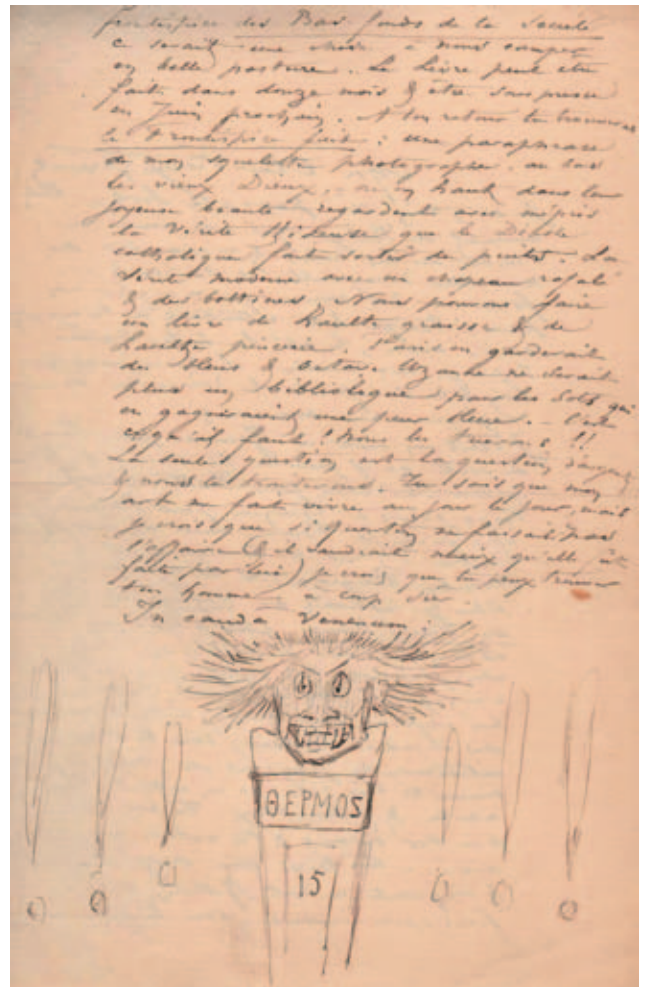 frontispice des Bas fonds de la Société
ce serait une chose à nous camper
en belle posture. Le livre peut être
fait dans douze mois & être sous presse
en Juin prochain. A ton retour tu trouveras
le Frontispice fait : une paraphrase
de mon squelette photographe. au bas
les vieux Dieux, ou en haut dans leur
joyeuse beauté regardent avec mépris
la Vérité Hideuse que le Diable
catholique fait sortir du puits. La
Vérité moderne avec un chapeau
& des bottines. Nous pouvons faire
un livre de haulte graisse & de
haulte . Paris en garderait
des bleus & Octave Uzanne ne serait
plus un bibliologue pour les Sots qui
en gagneraient une peur bleue. – C'est
ce qu'il faut ! Nous les tuerons !!
La seule question est la question d'argent
& nous la . Tu sais que mon
art me fait vivre au jour le jour, mais
je crois que si Quantin ne faisait pas
l'affaire (& il vaudrait mieux qu'elle fût
faite par lui) je crois que tu peux trouver
ton homme à coup sûr.
In caudâ Venenum :
ΘΕΡΜΟS
15